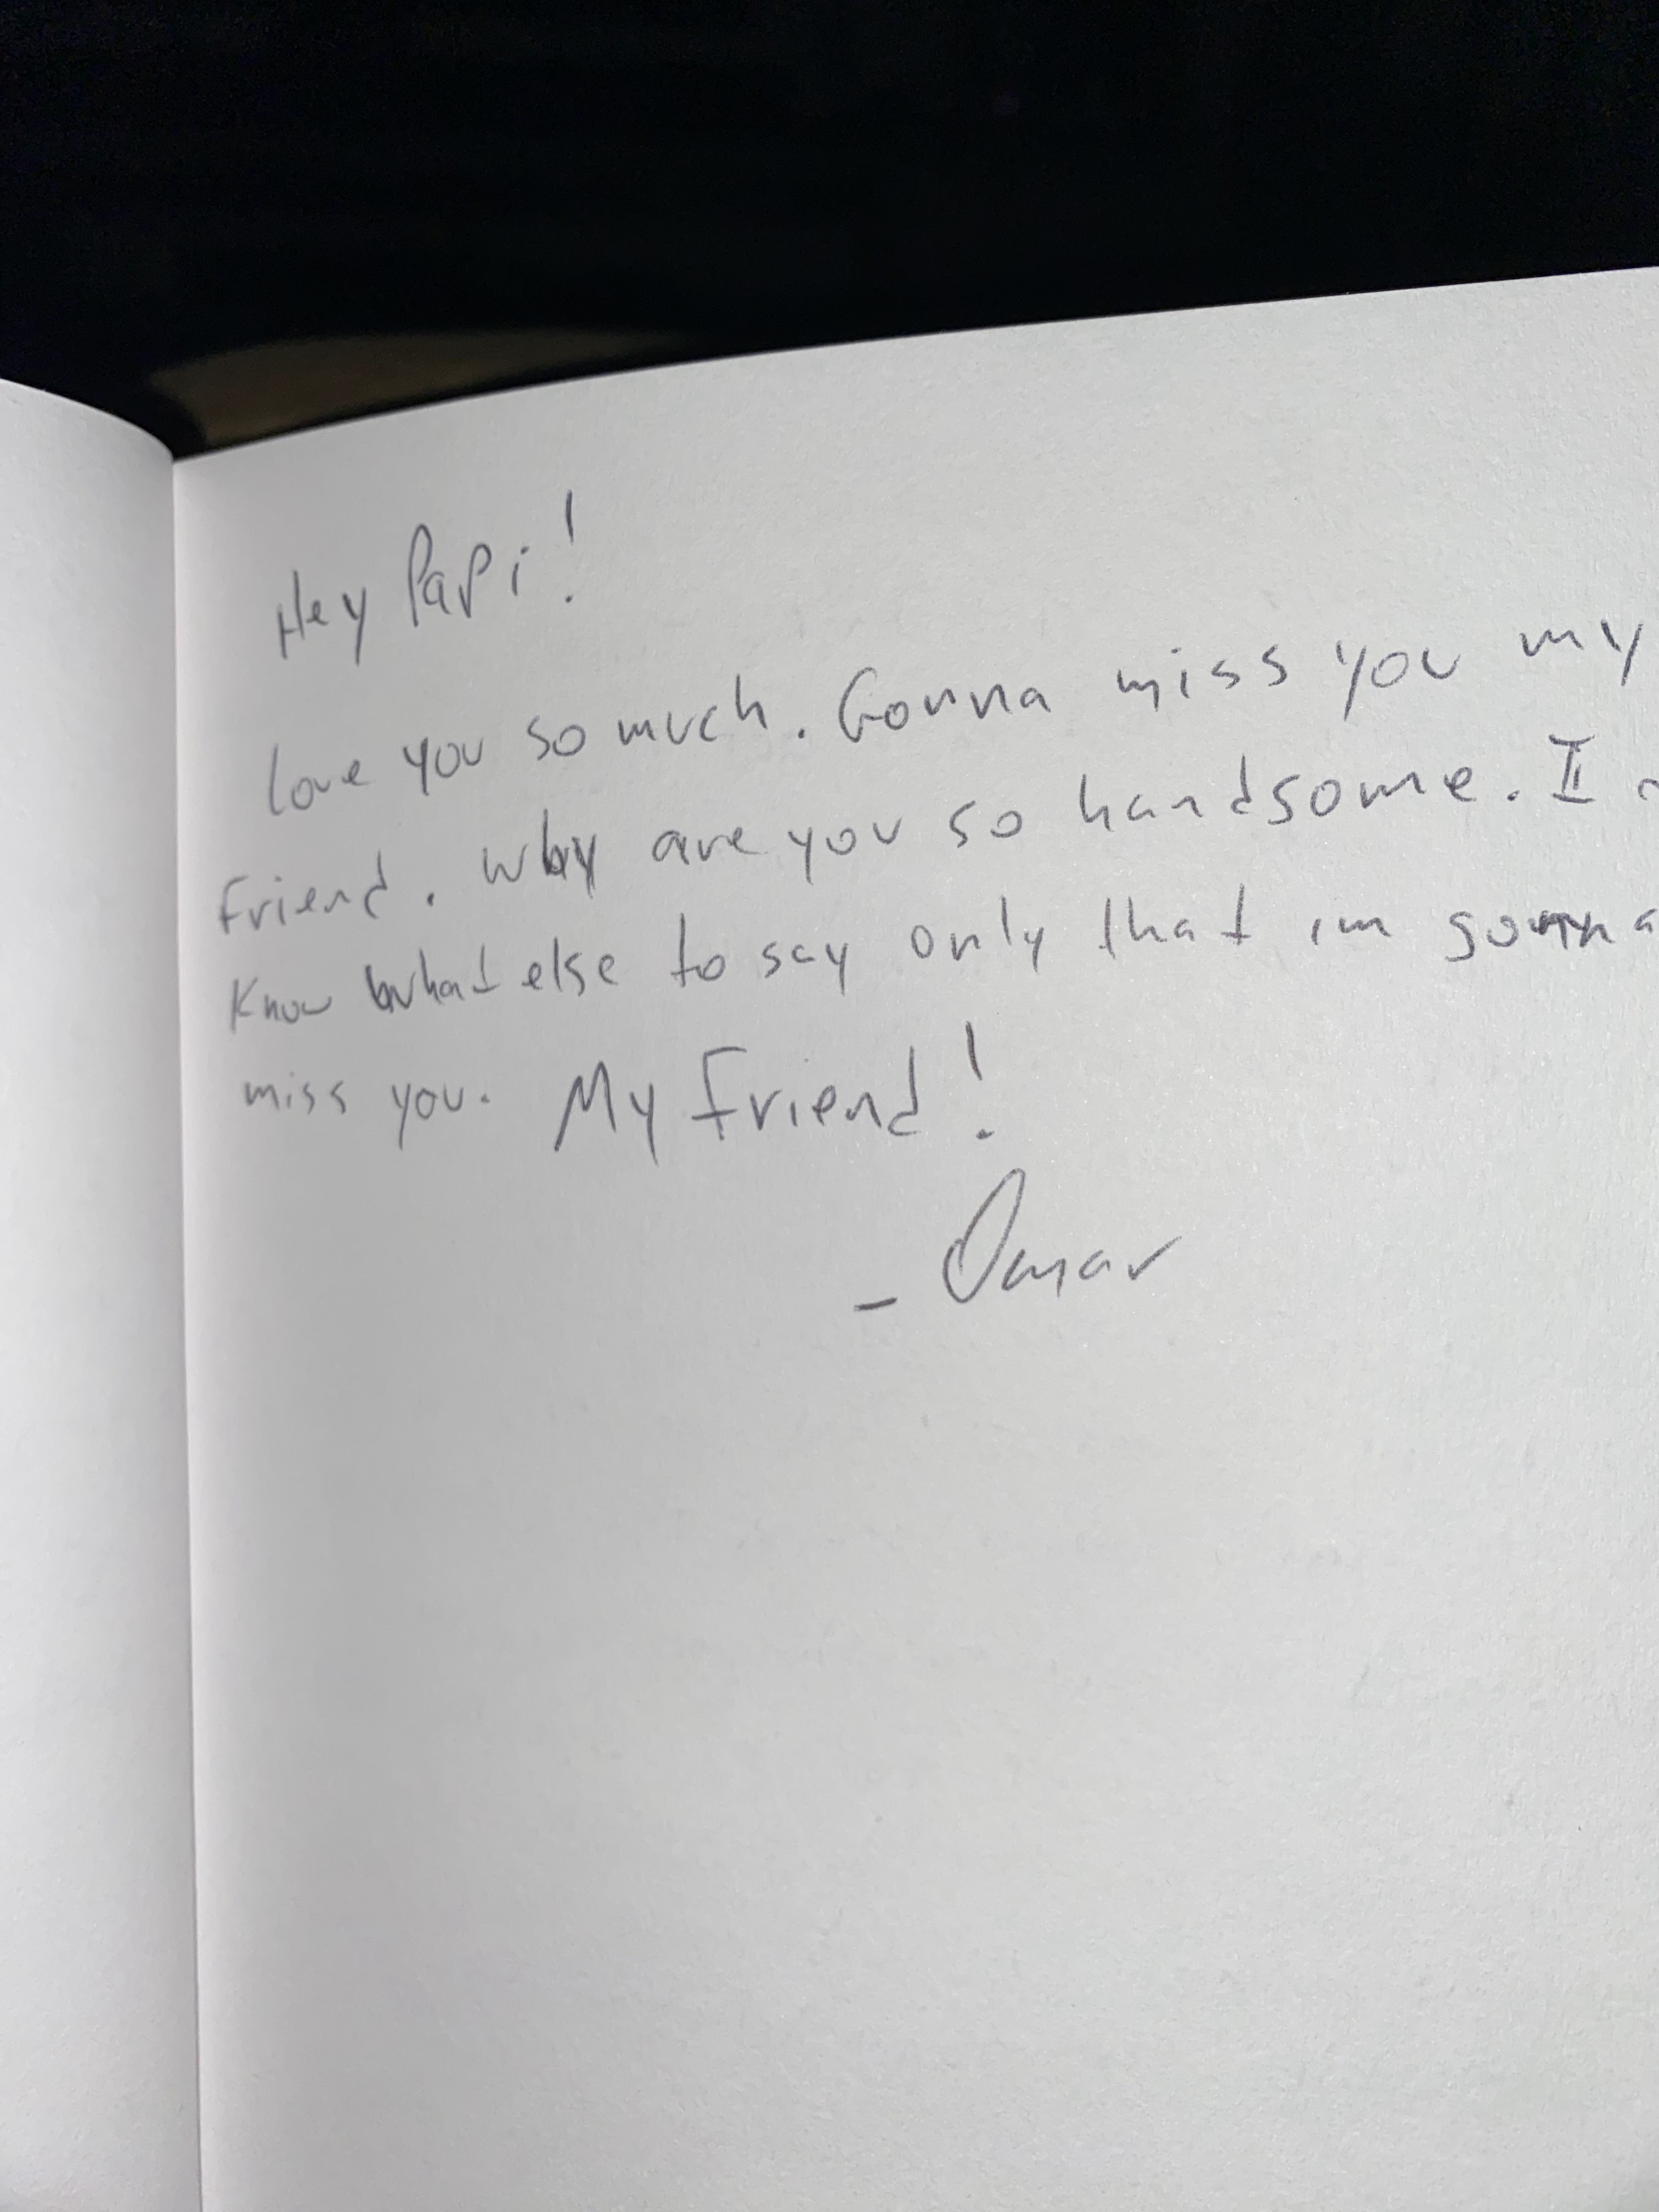 Hey Papi!
love you so much. Gonna miss you my
friend. Why are you so handsome. I
Know what else to say only that im gonna
miss you. My Friend!
- Omar